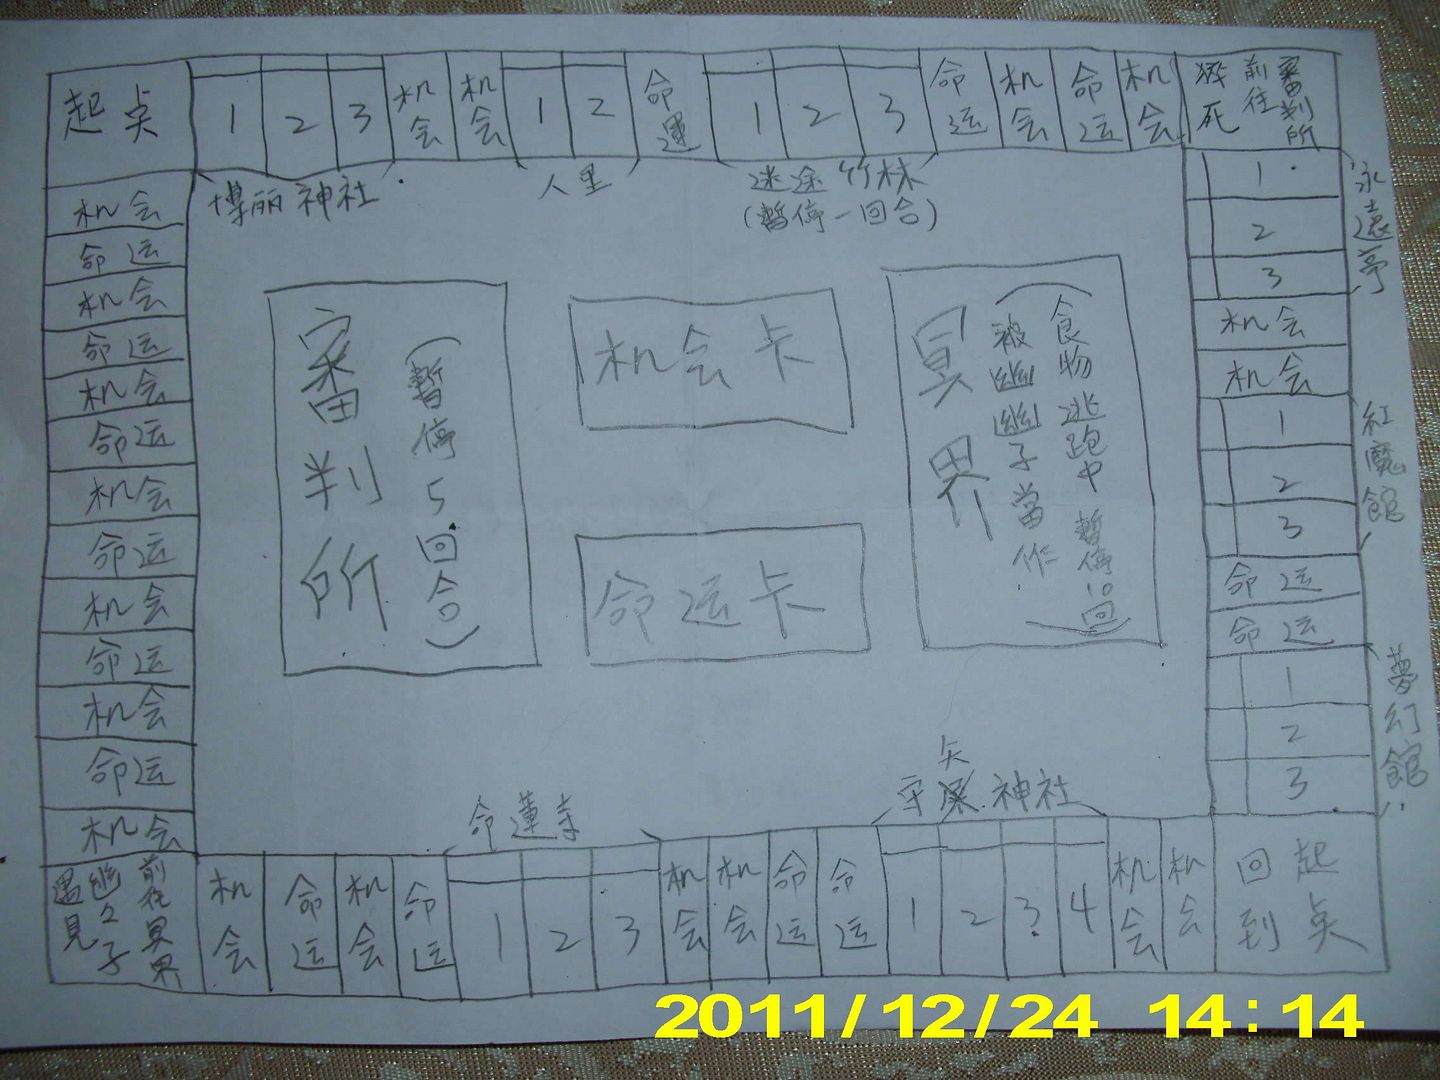 起点
1
2
3
机会
机会
1
2
命運
1
2
3
命运
机会
命运
机会
猝死 前往審判所
博丽神社
人里
迷途竹林
(暂停一回合)
1
2
3
永遠亭
机会
机会
1
2
3
紅魔館
命运
命运
1
2
3
夢幻館
机会
命运
机会
命运
机会
命运
机会
命运
机会
命运
机会
命运
机会
審判所
(暫停5回合)
机会卡
命运卡
冥界
(食物逃跑中 暫停10回)
被幽幽子當作
命蓮寺
守矢神社
遇見幽々子 前往冥界
机会
命运
机会
命运
1
2
3
机会
机会
命运
命运
1
2
3
4
机会
机会
回到起点
2011/12/24 14:14